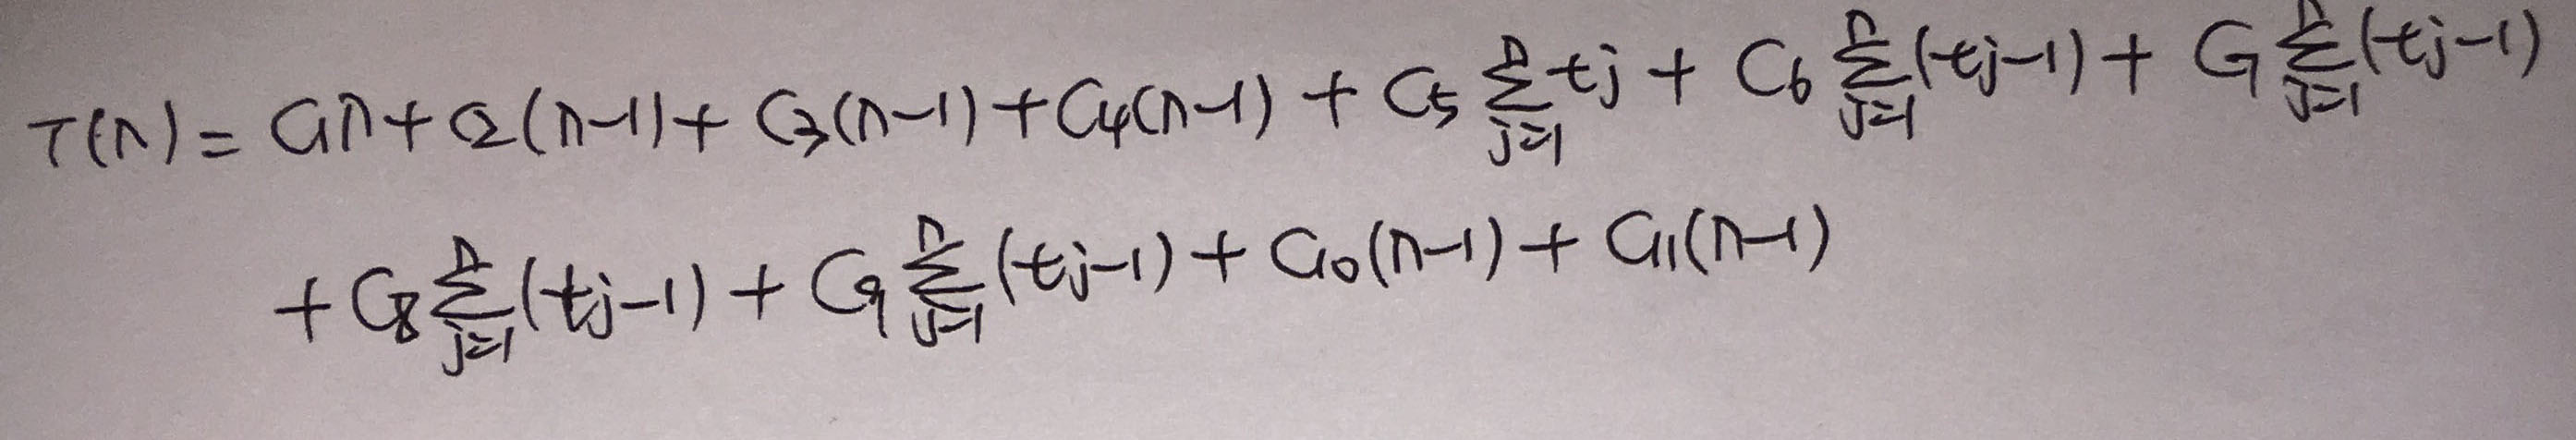 T(n) = C₁n + C₂(n-1) + C₃(n-1) + C₄(n-1) + C₅ ∑_{j=1}^{n} tj + C₆ ∑_{j=1}^{n} (tj-1) + C₇ ∑_{j=1}^{n} (tj-1)
+ C₈ ∑_{j=1}^{n} (tj-1) + C₉ ∑_{j=1}^{n} (tj-1) + C₁₀(n-1) + C₁₁(n-1)